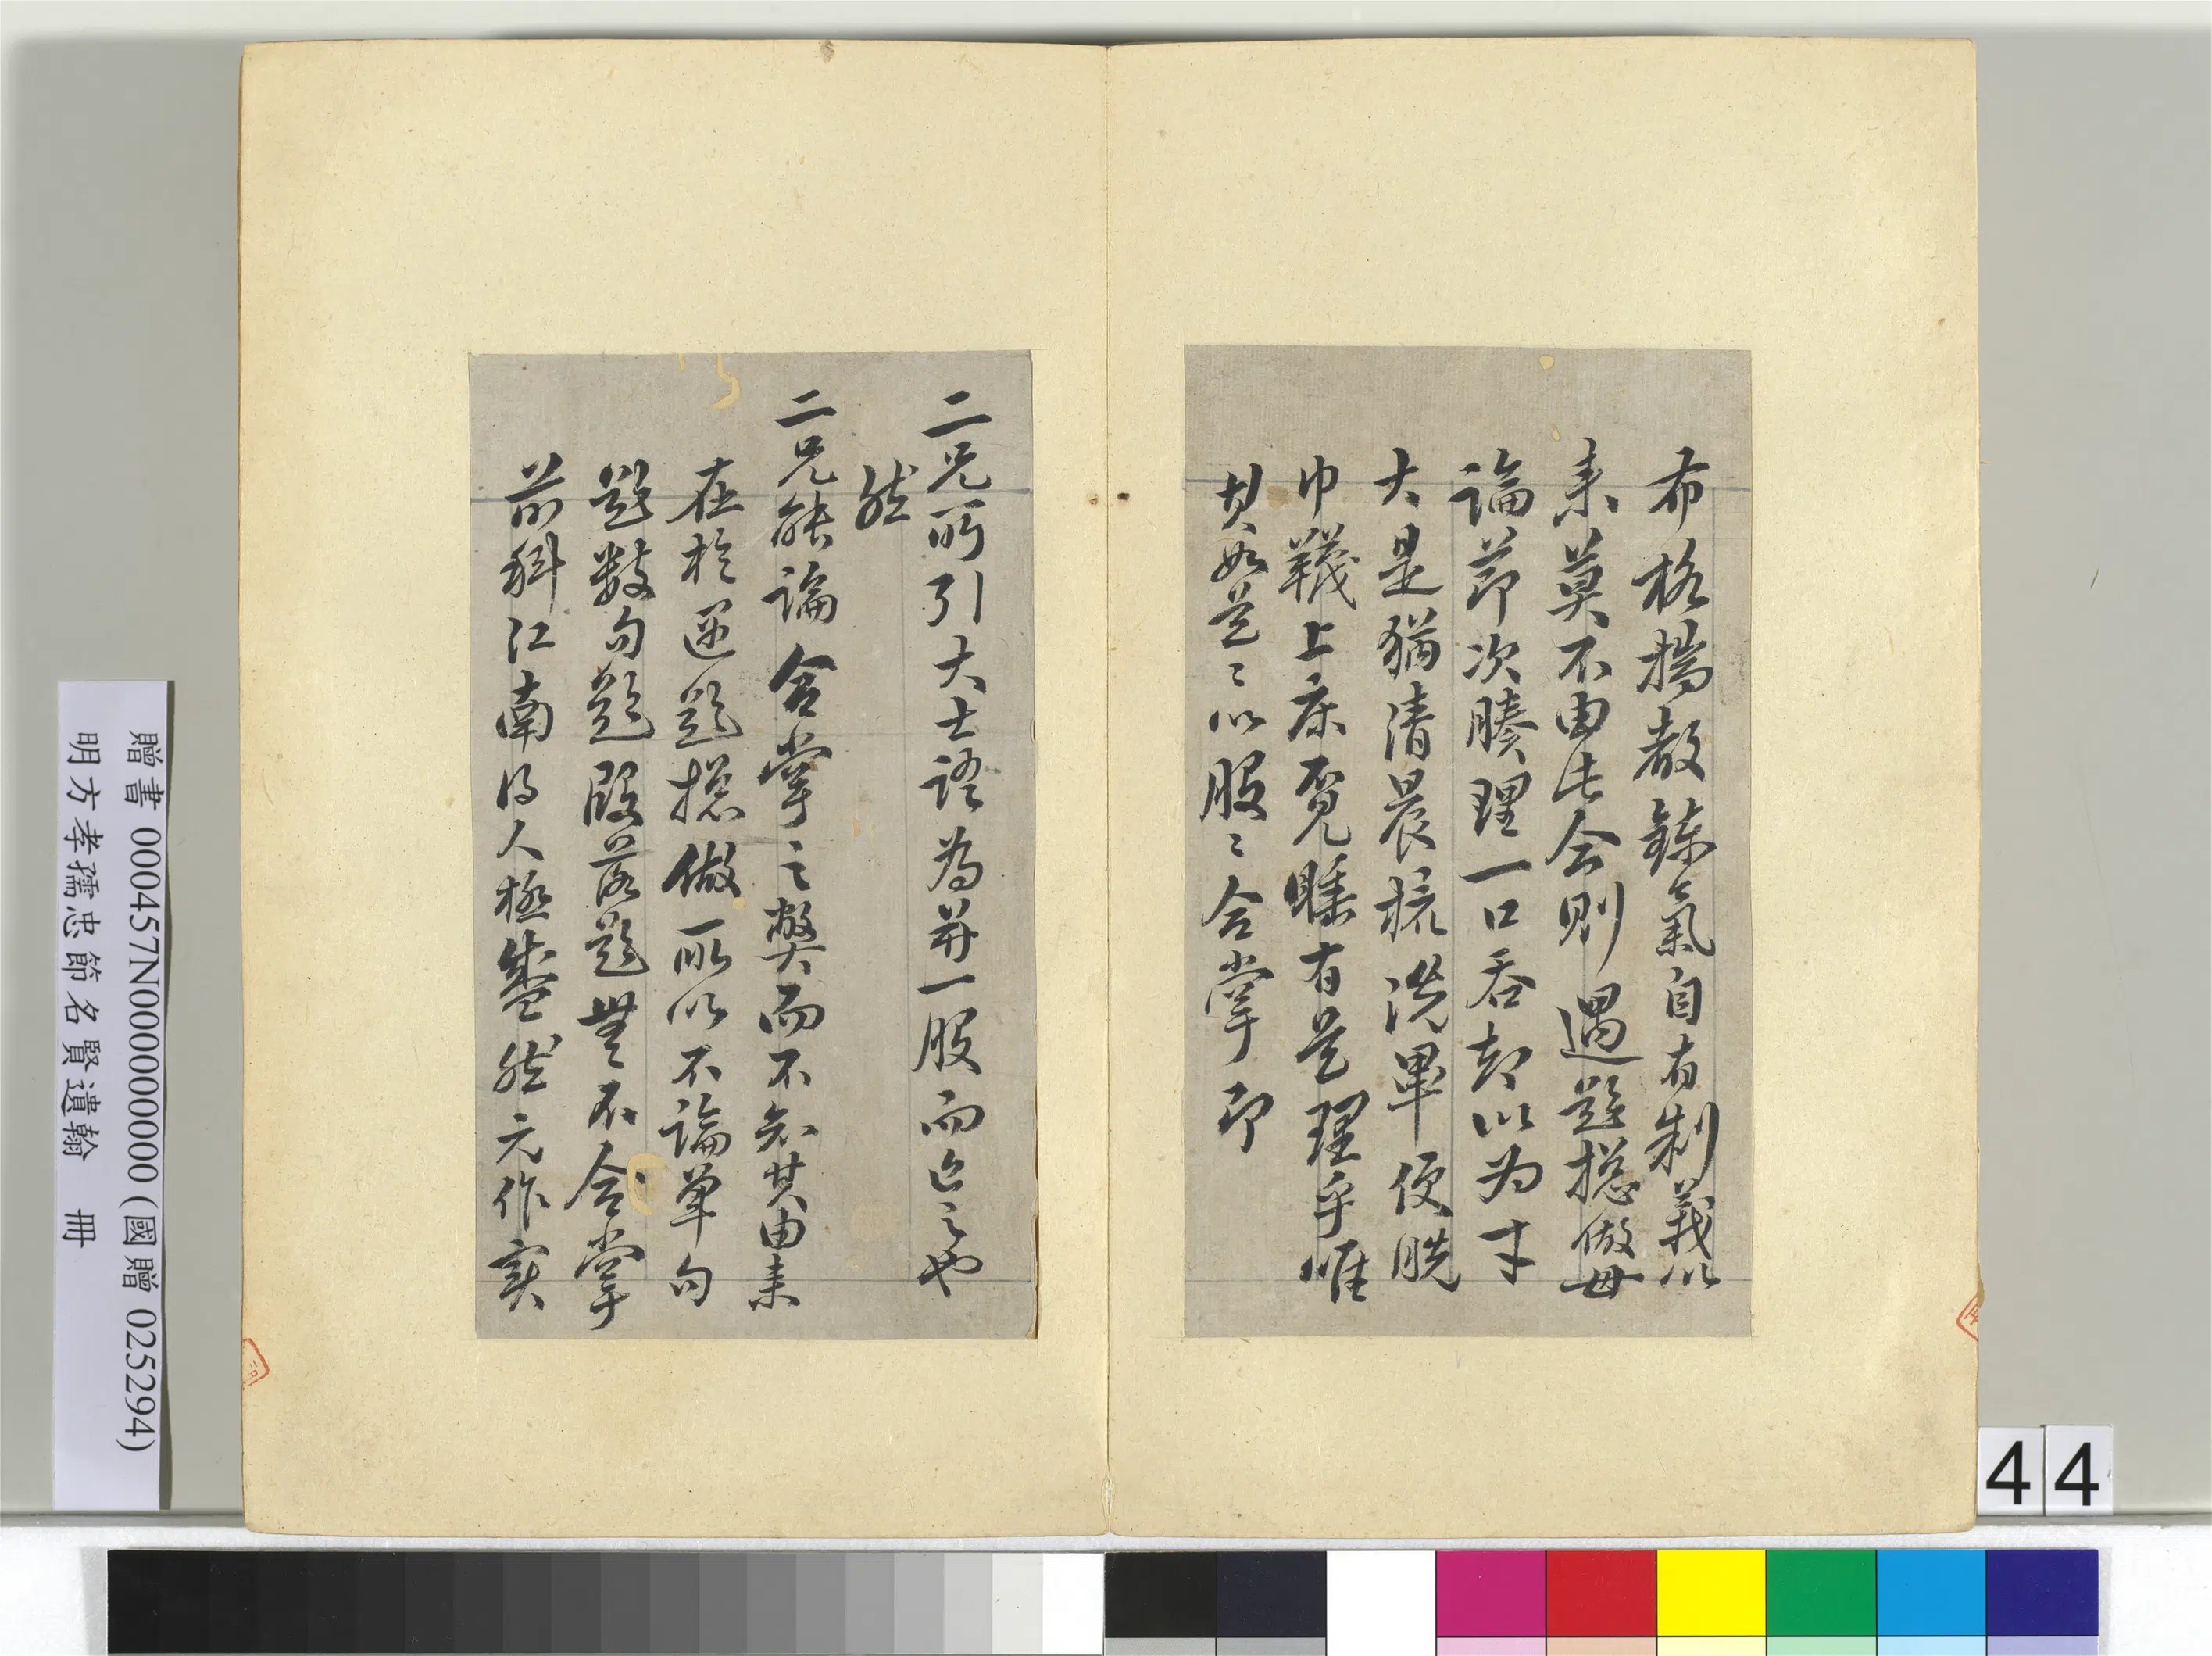 布格揣裁鍊氣自有制義以
來莫不由此今則遇題總做毋
論節次腠理一口吞却以為才
大是猶清晨梳洗畢便脫
巾襪上床覓睡有是理乎惟
其如是是以股股合掌即
二兄所引大士語為并一股而亡之也
然
二兄能論合掌之弊而不知其由來
在於逆題總做所以不論單句
題數句題段落題無不合掌
前科江南得人極盛然元作實
贈書 000457N000000000 (國贈 025294)
明方孝孺忠節名賢遺翰 冊
44